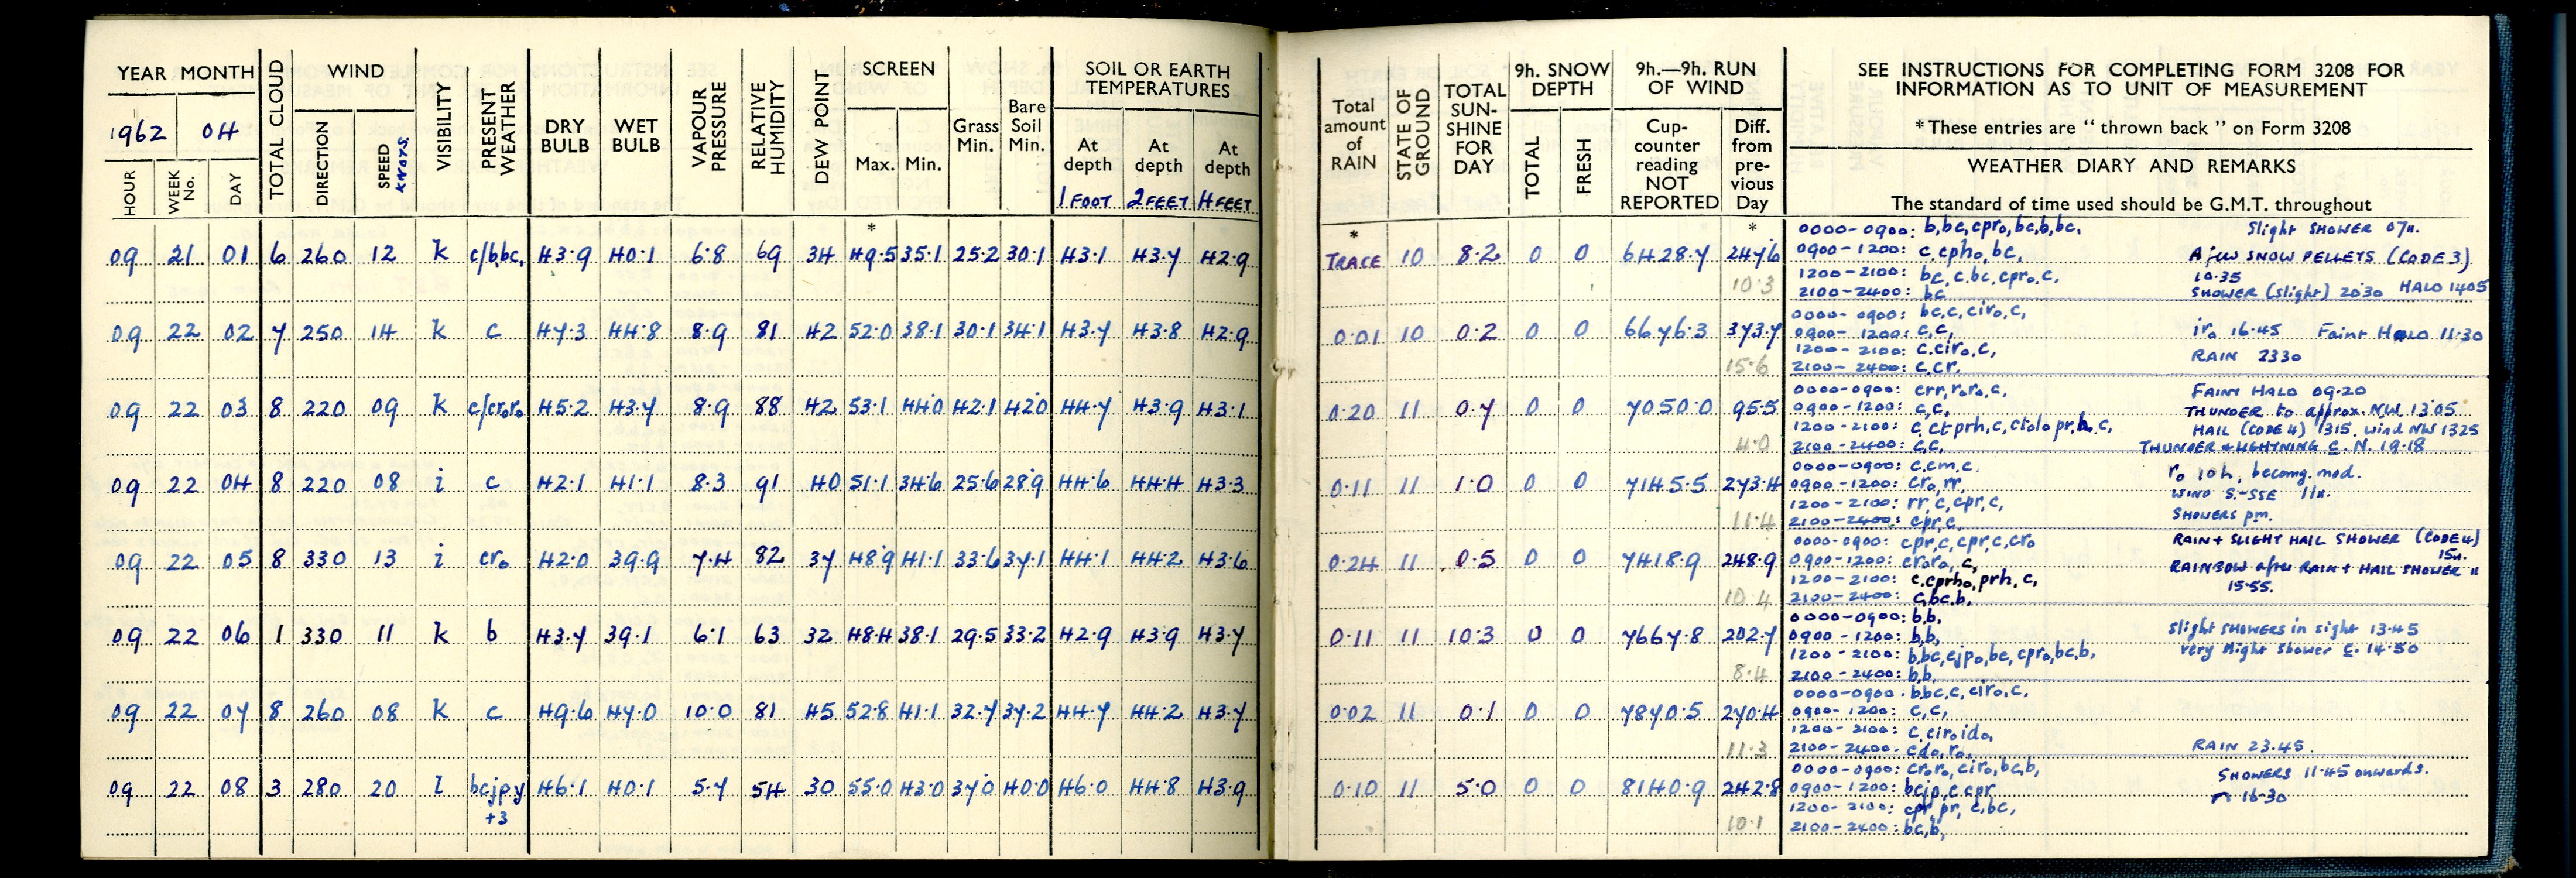 YEAR MONTH
1962 04
HOUR WEEK No. DAY
TOTAL CLOUD
WIND
DIRECTION SPEED KNOTS.
VISIBILITY
PRESENT WEATHER
DRY BULB
WET BULB
VAPOUR PRESSURE
RELATIVE HUMIDITY
DEW POINT
SCREEN
Max. Min.
Grass Min.
Bare Soil Min.
SOIL OR EARTH TEMPERATURES
At depth 1 FOOT
At depth 2 FEET
At depth 4 FEET
*
09 21 01 6 260 12 k c/bbc, 43.9 40.1 6.8 69 34 49.5 35.1 25.2 30.1 43.1 43.7 42.9
09 22 02 7 250 14 k c 47.3 44.8 8.9 81 42 52.0 38.1 30.1 34.1 43.7 43.8 42.9
09 22 03 8 220 09 k c/cr.oro 45.2 43.7 8.9 88 42 53.1 44.0 42.1 42.0 44.7 43.9 43.1
09 22 04 8 220 08 i c 42.1 41.1 8.3 91 40 51.1 34.6 25.6 28.9 44.6 44.4 43.3
09 22 05 8 330 13 i cro 42.0 39.9 7.4 82 37 48.9 41.1 33.6 37.1 44.1 44.2 43.6
09 22 06 1 330 11 k b 43.7 39.1 6.1 63 32 48.4 38.1 29.5 33.2 42.9 43.9 43.7
09 22 07 8 260 08 k c 49.6 47.0 10.0 81 45 52.8 41.1 32.7 37.2 44.7 44.2 43.7
09 22 08 3 280 20 l bcjpy 46.1 40.1 5.7 54 30 55.0 43.0 37.0 40.0 46.0 44.8 43.9
+3
Total amount of RAIN
STATE OF GROUND
TOTAL SUN-SHINE FOR DAY
9h. SNOW DEPTH
TOTAL FRESH
9h.—9h. RUN OF WIND
Cup-counter reading NOT REPORTED
Diff. from pre-vious Day
SEE INSTRUCTIONS FOR COMPLETING FORM 3208 FOR
INFORMATION AS TO UNIT OF MEASUREMENT
* These entries are “ thrown back ” on Form 3208
WEATHER DIARY AND REMARKS
The standard of time used should be G.M.T. throughout
* *
TRACE 10 8.2 0 0 6428.7 247.6
10.3
0000-0900: b,bc,cpro,bc,b,bc, Slight SHOWER 07H.
0900-1200: c,cpho,bc, A few SNOW PELLETS (CODE 3)
1200-2100: bc,c.bc,cpro,c, 10.35
2100-2400: bc SHOWER (slight) 2030 HALO 1405
0.01 10 0.2 0 0 6676.3 373.7
15.6
0000-0900: bc,c,ciro,c,
0900-1200: c,c, iro 16.45 Faint HALO 11.30
1200-2100: c.ciro,c, RAIN 2330
2100-2400: c,cr,
0.20 11 0.7 0 0 7050.0 95.5
4.0
0000-0900: crr,roro,c, FAINT HALO 09.20
0900-1200: c,c, THUNDER to approx. NW 13.05
1200-2100: c,ctprh,c,ctolo prh c, HAIL (CODE 4) 1315. wind NW 1325
2100-2400: c,c, THUNDER & LIGHTNING c. N. 19.18
0.11 11 1.0 0 0 7145.5 273.4
11.4
0000-0900: c,cm,c. ro 10h, becomg. mod.
0900-1200: cro,rr, WIND S.-SSE 11H.
1200-2100: rr,c,cpr,c, SHOWERS pm.
2100-2400: cpr,c,
0.24 11 0.5 0 0 7418.9 248.9
10.4
0000-0900: cpr,c,cpr,c,cro RAIN + SLIGHT HAIL SHOWER (CODE 4) 15H.
0900-1200: croro, c, RAINBOW after RAIN + HAIL SHOWER "
1200-2100: c.cprho,prh,c, 15.55.
2100-2400: c,bc,b,
0.11 11 10.3 0 0 7667.8 202.7
8.4
0000-0900: b,b,
0900-1200: b,b, Slight SHOWERS in sight 13.45
1200-2100: b,bc,cjpo,bc,cpro,bc,b, very slight shower c. 14.50
2100-2400: b,b,
0.02 11 0.1 0 0 7870.5 270.4
11.3
0000-0900: b,bc,c,ciro,c,
0900-1200: c,c,
1200-2100: c,ciro,ido,
2100-2400: cdo,ro, RAIN 23.45.
0.10 11 5.0 0 0 8140.9 242.8
10.1
0000-0900: croro,ciro,bc,b, SHOWERS 11.45 onwards.
0900-1200: bcjp,c,cpr 16.30
1200-2100: cpr,pr, c,bc,
2100-2400: bc,b,